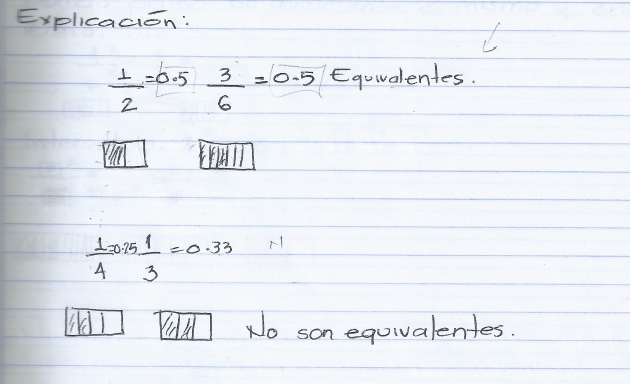 Explicación:
1/2 = 0.5 3/6 = 0.5 Equivalentes.
1/4 = 0.25 1/3 = 0.33
No son equivalentes.